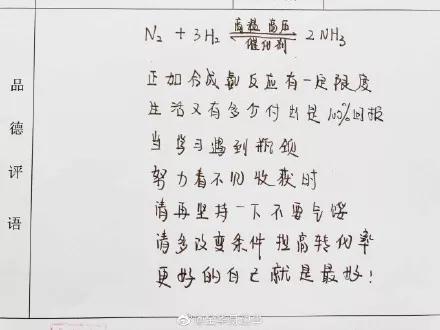 品德评语
N₂ + 3H₂ 高温 高压 ⇌ 催化剂 2NH₃
正如合成氨反应有一定限度
生活又有多少付出是100%回报
当学习遇到瓶颈
努力看不见收获时
请再坚持一下不要气馁
请多改变条件 提高转化率
更好的自己就是最好!